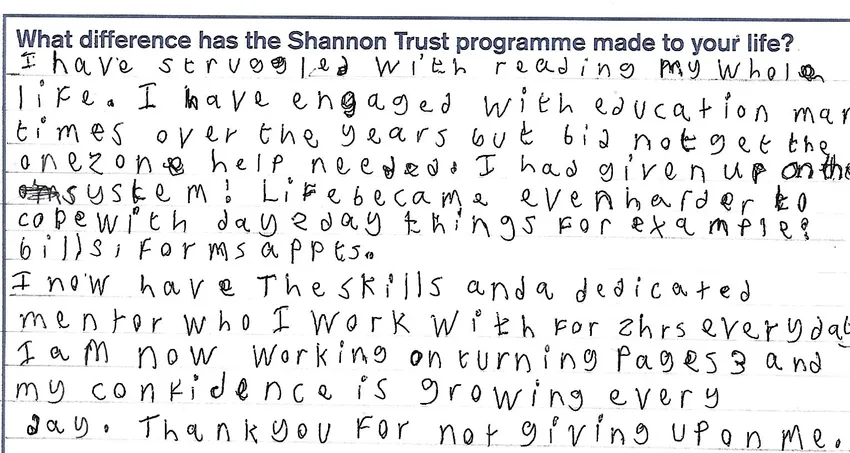 What difference has the Shannon Trust programme made to your life?
I have struggled with reading my whole
life. I have engaged with education man
times over the years but bid not get the
one2one help needed. I had given up on the
system! Life became even harder to
cope with day2day things for example:
bills, forms appts.
I now have The skills and a dedicated
mentor who I work with for 2hrs everyday
I am now working on turning pages 3 and
my confidence is growing every
day. Thankyou for not giving up on me.